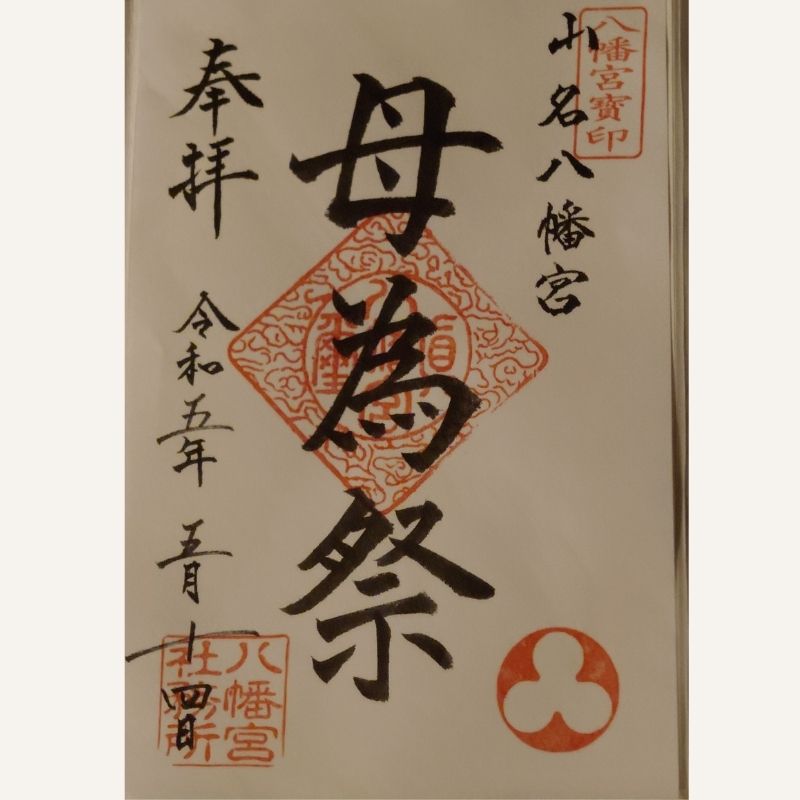 八幡宮寳印
山名八幡宮
母為祭
奉拝
令和五年 五月十四日
八幡宮
社務所